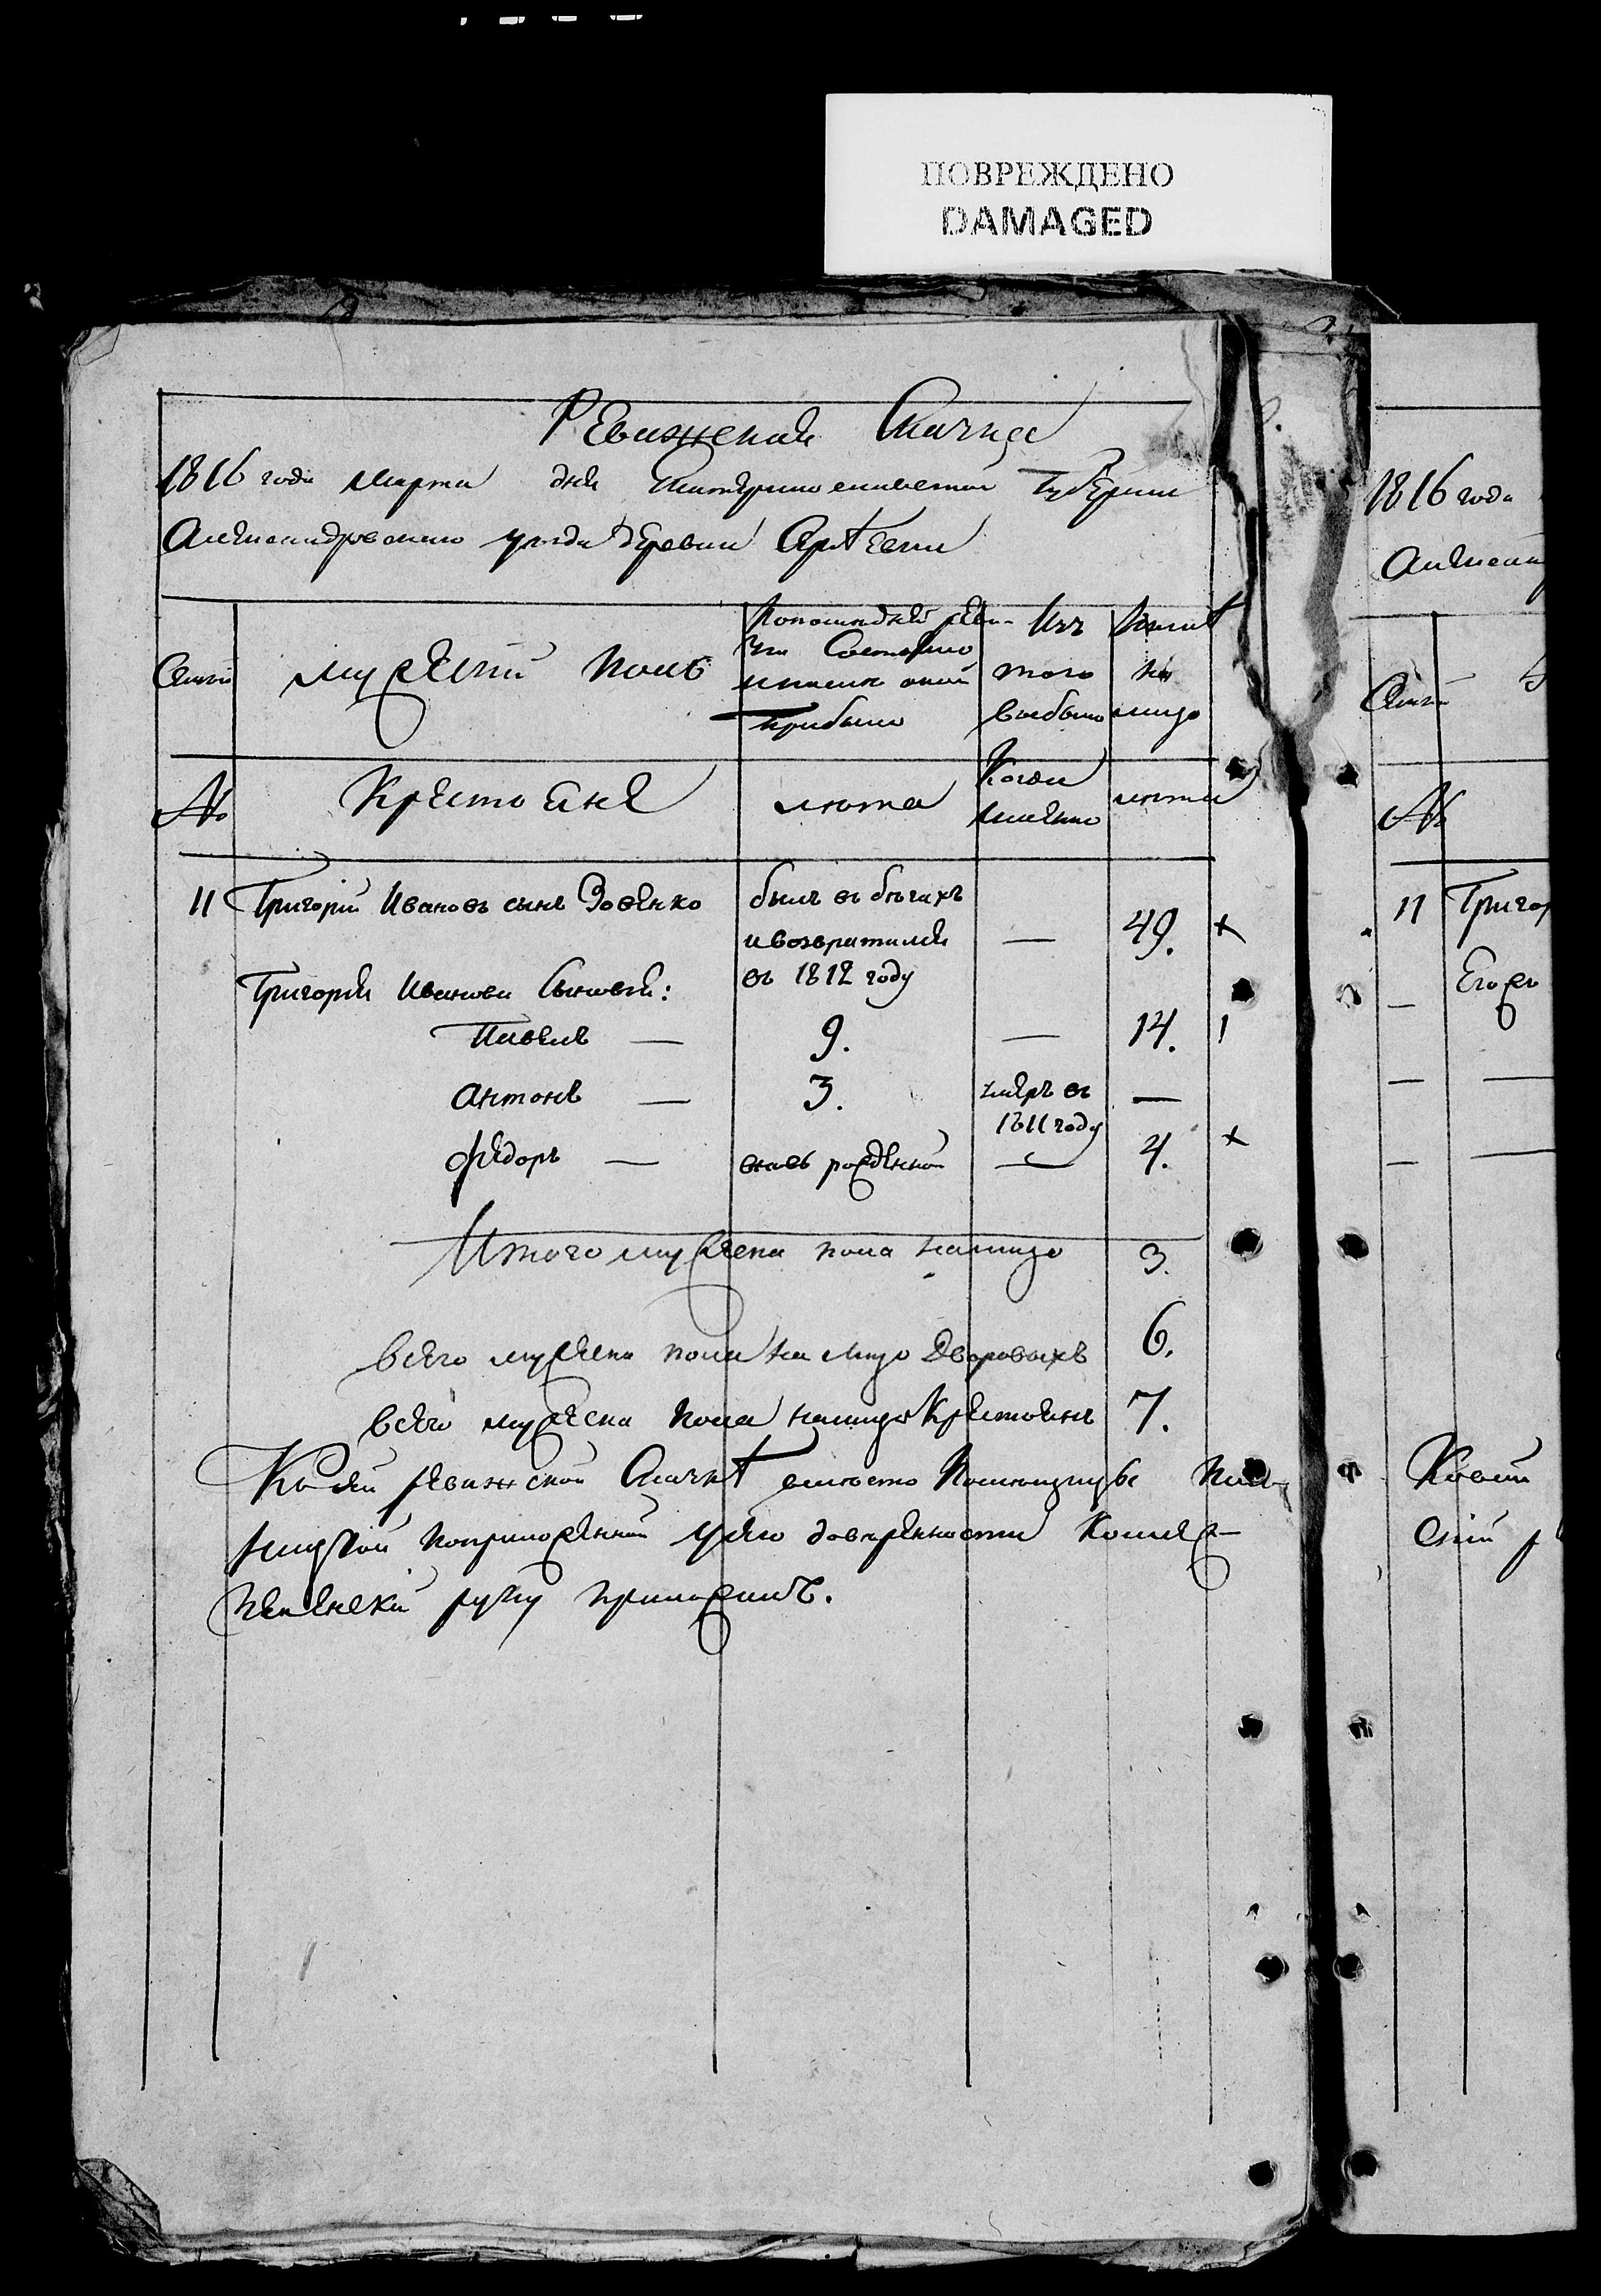 ПОВРЕЖДЕНО
DAMAGED
Ревижская Сказка
1816 года марта дня Екатеринославской Губернии
Александровского уезда деревни
Семьи
мужеский полъ
Попоследней реви-
зии Состояло
ипосле оной
прибыло
Изъ
того
выбыло
Ныне
на
лицо
№
Крестьяне
лета
Когда
имянно
лета
11 Григорий Ивановъ сынъ Зовенко
былъ въ бегахъ
ивозвратился
въ 1812 году
— 49. +
Григория Иванова Сыновья:
Павелъ — 9. — 14. 1
Антонъ — 3. умеръ въ
1811 году —
Федоръ — вновь рожденной — 4. +
Итого мужеска пола налицо 3.
Всего мужеска пола на лицо Дворовыхъ 6.
Всего мужеска пола налицо Крестьянъ 7.
Ксей ревижской Сказке вместо
доверенности
руку приложилъ.
1816 года
Семьи
№
11